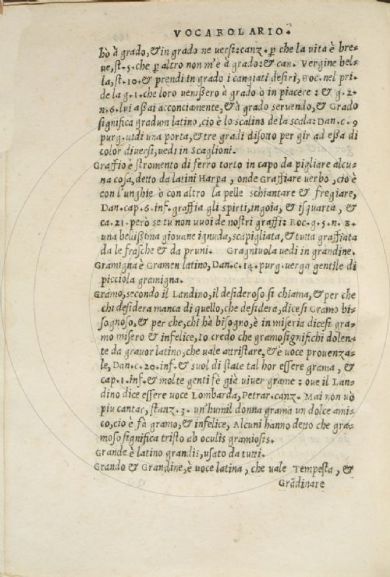 VOCABOLARIO.
hò à grado, & in grado ne versi: canz. p che la vita è bre-
ue, st. 5. che p altro non m'è à grado: & can. Vergine bel-
la, st. 10. & prendi in grado i cangiati desiri, Boc. nel pri-
de la g. 1. che loro venissero à grado ò in piacere: & g. 2.
n. 6. lui assai acconciamente, & à grado seruendo, & Grado
significa gradum latino, cio è lo scalino de la scala: Dan. c. 9
purg. uidi una porta, & tre gradi disotto per gir ad essa di
color diuersi, uedi in Scaglioni.
Graffio è stromento di ferro torto in capo da pigliare alcu-
na cosa, detto da latini Harpa, onde Graffiare uerbo, cio è
con l'unghie ò con altro la pelle schiantare & fregiare,
Dan. cap. 6. inf. graffia gli spirti, ingoia, & isquarta, &
ca. 21. pero se tu non vuoi de nostri graffi: Boc. g. 5. n. 8.
una bellissima giouane ignuda, scapigliata, & tutta graffiata
da le frasche & da pruni. Gragniuola uedi in grandine.
Gramigna è Gramen latino, Dan. c. 14. purg. uerga gentile di
picciola gramigna.
Gramo, secondo il Landino, il desideroso si chiama, & per che
chi desidera manca di quello, che desidera, dicesi Gramo bi-
sognoso, & per che, chi hà bisogno, è in miseria dicesi gra-
mo misero & infelice, Io credo che gramo significhi dolen-
te da grauor latino, che uale attristare, & è uoce prouenza-
le, Dan. c. 20. inf. & suol di state tal hor essere grama, &
cap. 1. inf. & molte genti fè già viuer grame: oue il Lan-
dino dice essere uoce Lombarda, Petrar. canz. Mai non uò
piu cantar, stanz. 3. un'humil donna grama un dolce ami-
co, cio è fà gramo, & infelice, Alcuni hanno detto che gra-
moso significa tristo ab oculis gramiosis.
Grande è latino grandis, usato da tutti.
Grando & Grandine, è uoce latina, che uale Tempesta, &
Grādinare